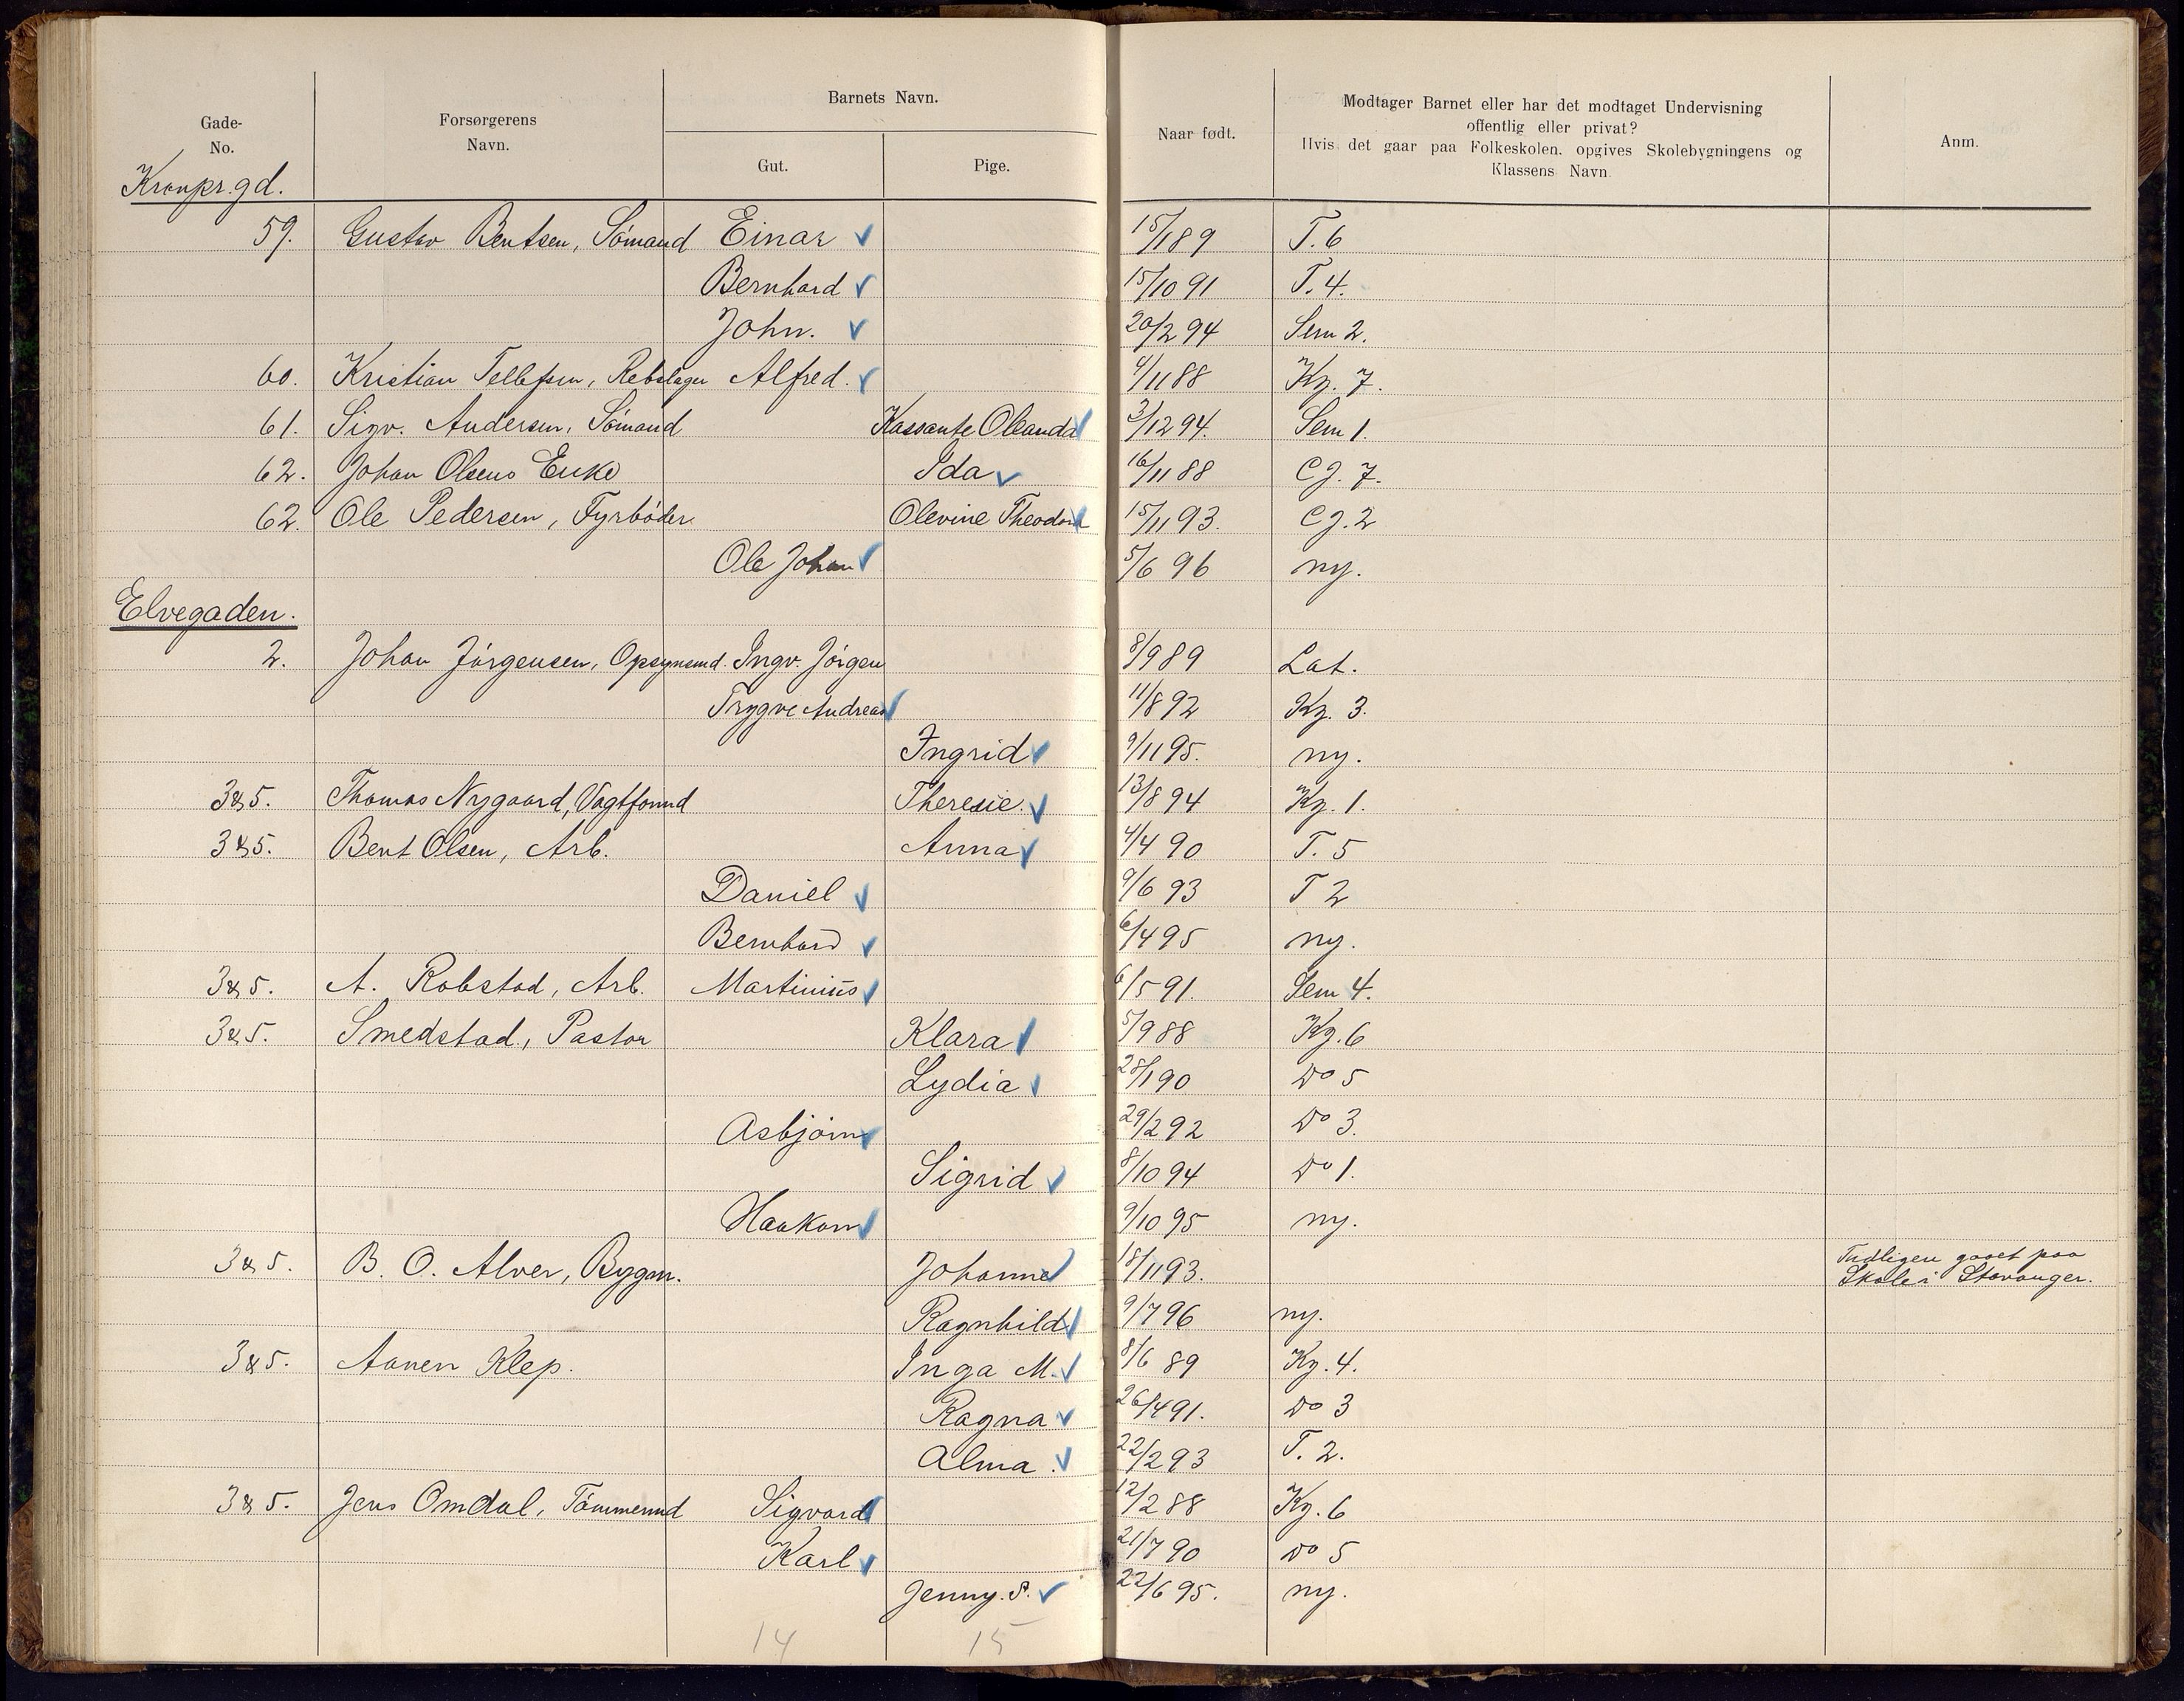 Gade-
No.
Forsørgerens
Navn.
Barnets Navn.
Gut.
Pige.
Naar født.
Modtager Barnet eller har det modtaget Undervisning
offentlig eller privat?
Hvis det gaar paa Folkeskolen. opgives Skolebygningens og
Klassens Navn.
Anm.
Kronpr.gd.
59. Gustav Bentsen, Sömand Einar 15/1 89 T. 6
Bernhard 15/10 91 T. 4.
John. 20/2 94 Sem 2.
60. Kristian Tellefsen, Rebslager Alfred. 4/11 88 Kg. 7.
61. Sigv. Andersen, Sömand Kassante Oleanda 3/12 94. Sem 1.
62. Johan Olsens Enke Ida 16/11 88 CJ. 7.
62. Ole Pedersen, Fyrböder Olevine Theodora 15/11 93. CJ. 2
Ole Johan 5/6 96 ny.
Elvegaden.
2. Johan Jörgensen, Opsynsmd. Ingv. Jörgen 8/9 89 Lat.
Trygve Andreas 11/8 92 Kg. 3.
Ingrid 9/11 95. ny.
3&5. Thomas Nygaard, Vagtformd Theresie. 13/8 94 Kg. 1.
3&5. Bent Olsen, Arb. Anna 4/4 90 T. 5
Daniel 9/6 93 T 2
Bernhard 6/4 95 ny.
3&5. A. Robstad, Arb. Martinius 6/5 91. Sem 4.
3&5. Smedstad, Pastor Klara 5/9 88 Kg. 6
Lydia 28/1 90 Do 5
Asbjörn 29/2 92 Do 3.
Sigrid 8/10 94 Do 1.
Haakon 9/10 95 ny.
3&5. B. O. Alver, Bygm. Johanne 18/11 93. Tidligen gaaet paa
Skole i Stavanger.
Ragnhild 9/7 96 ny.
3&5. Aanen Klep. Inga M. 8/6 89 Kg. 4.
Ragna 26/4 91. Do 3
Alma. 22/2 93 T. 2.
3&5. Jens Omdal, Tömmermd Sigvard 12/2 88 Kg. 6
Karl 21/7 90 Do 5
Jenny. S. 22/6 95. ny.
14 15